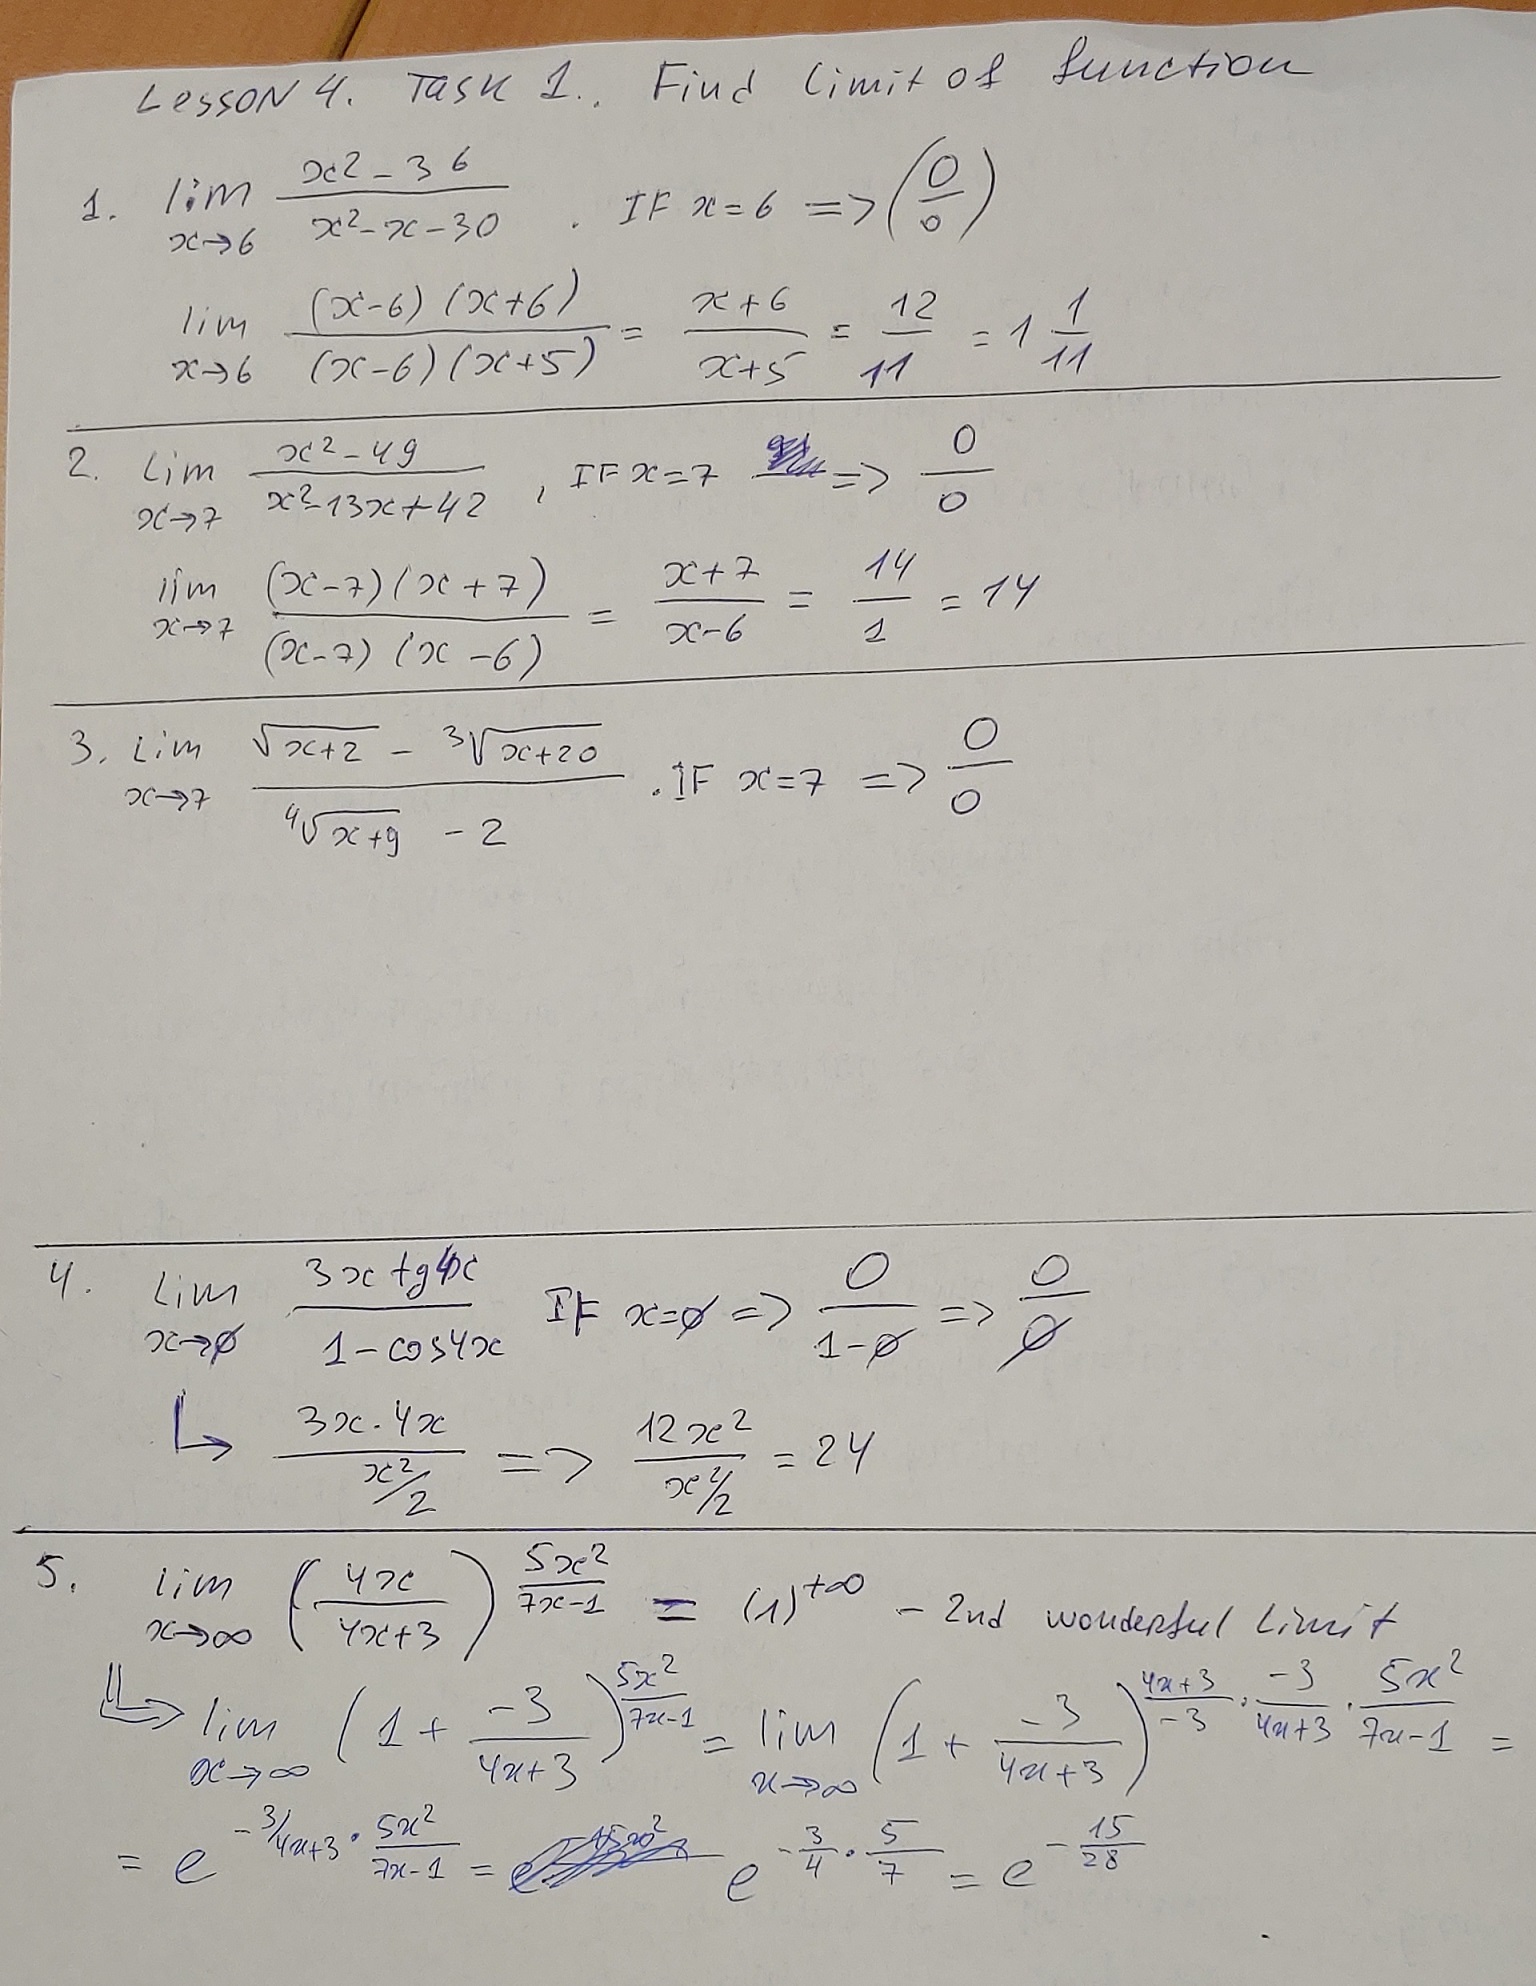 Lesson 4. Task 1. Find limit of function
1. lim x→6 (x² - 36)/(x² - x - 30) . IF x = 6 => (0/0)
lim x→6 ((x-6)(x+6))/((x-6)(x+5)) = (x+6)/(x+5) = 12/11 = 1 1/11
2. Lim x→7 (x² - 49)/(x² - 13x + 42) , IF x = 7 => 0/0
lim x→7 ((x-7)(x+7))/((x-7)(x-6)) = (x+7)/(x-6) = 14/1 = 14
3. Lim x→7 (√(x+2) - ³√(x+20))/(⁴√(x+9) - 2) . IF x = 7 => 0/0
4. Lim x→0 (3x tg4x)/(1 - cos4x) IF x = 0 => 0/(1-0) => 0/0
↳ (3x · 4x)/(x²/2) => 12x²/(x²/2) = 24
5. lim x→∞ (4x/(4x+3))^(5x²/(7x-1)) = (1)^(+∞) - 2nd wonderful Limit
↳ lim x→∞ (1 + (-3)/(4x+3))^(5x²/(7x-1)) = lim x→∞ (1 + (-3)/(4x+3))^((4x+3)/(-3) · (-3)/(4x+3) · 5x²/(7x-1)) =
= e^(-3/(4x+3) · 5x²/(7x-1)) = e^(-3/4 · 5/7) = e^(-15/28)